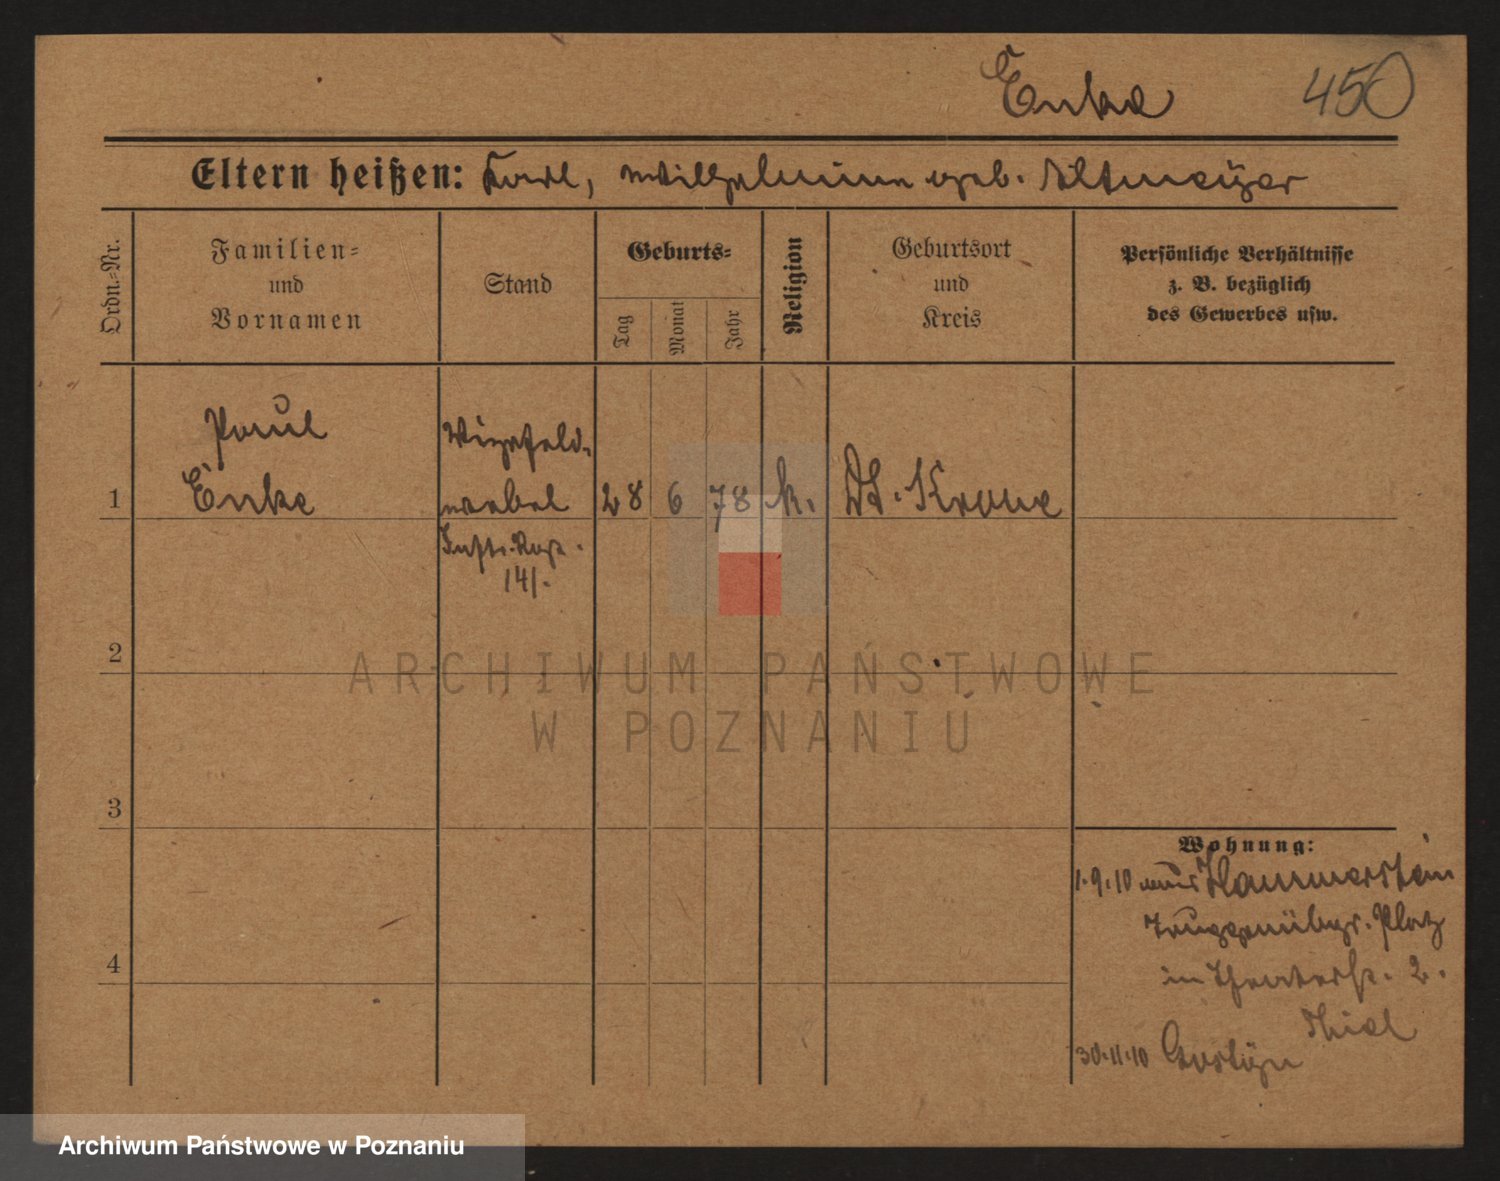 Enke 450
Eltern heißen: Karl, Wilhelmine geb. Altmeyer
Ordn.-Nr.
Familien-
und
Vornamen
Stand
Geburts-
Tag
Monat
Jahr
Religion
Geburtsort
und
Kreis
Persönliche Verhältnisse
z. B. bezüglich
des Gewerbes usw.
Paul
Vizefeld-
1 Enke webel 28 6 78 k. Dt. Krone
Inftr. Rgt.
141.
2
ARCHIWUM PAŃSTWOWE
W POZNANIU
3
Wohnung:
1.9.10 aus Hammerstein
4 Truppenübgs. Platz
in Theaterstr. 2.
Thiel
30.11.10 Gostyn
Archiwum Państwowe w Poznaniu